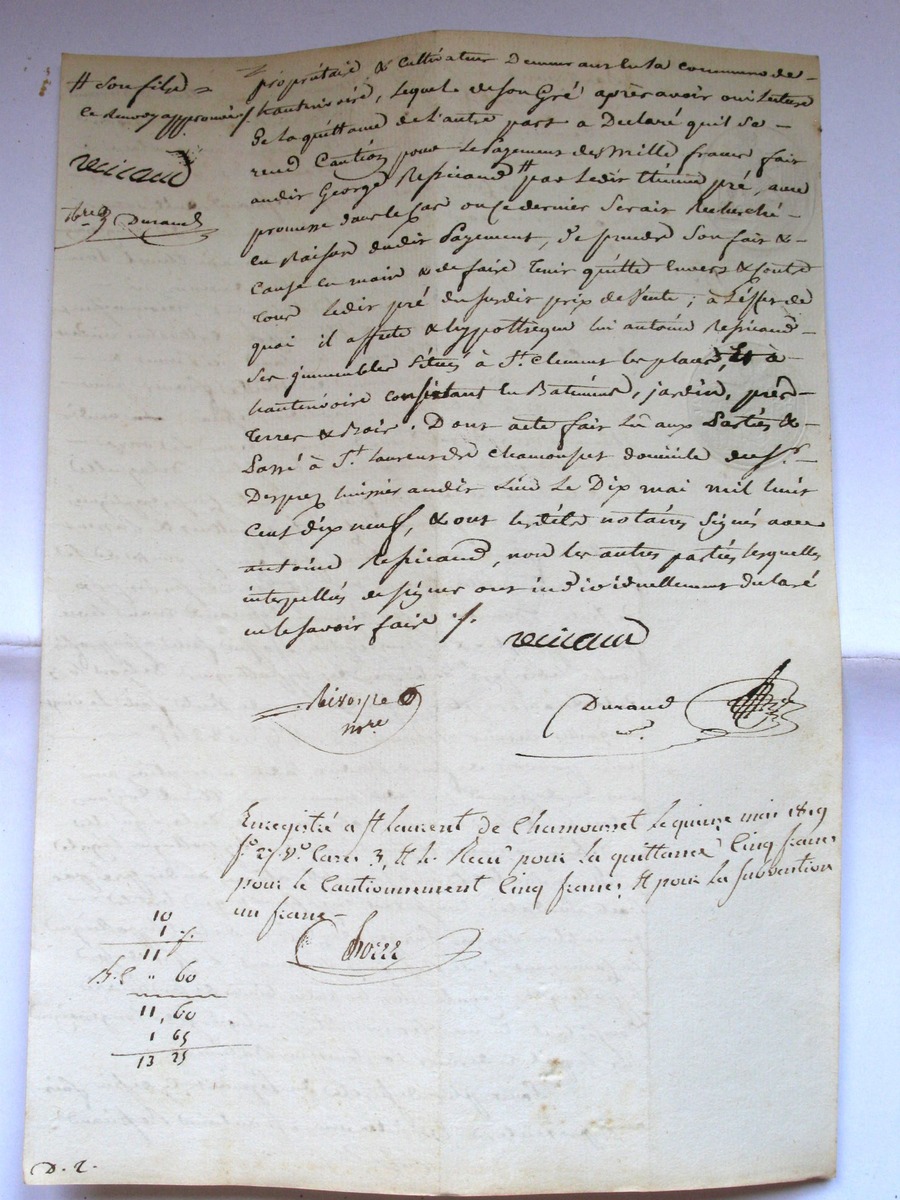 # Son fils
ce renvoy approuvé
reicaud
Durand
propriétaire & cultivateur Demeurant en la commune de
hauterivoire, lequel de son Gré après avoir oui lecture
De la quittance de l'autre part a Declaré qu'il se
rend Caution pour le Payement des Mille francs fait
audit George Repicaud # par Ledit pré, avec
promesse dans le cas ou ce dernier serait Recherché
en Raison dudit Payement, de prendre son fait &
Cause en main & de faire tenir quitte Envers & contre
tous Ledit pré du susdit prix de Vente ; à L'effet de
quoi il affecte & hypothèque lui antoine Repicaud
Ses immeubles Situés à St. Clement les places, & à
hauterivoire consistant en Batiment, jardin, prés
Terres & Bois. Dont acte fait Lu aux Parties &
Passé à St. Laurent de Chamousset domicile du Sr.
Desprez huissier audit Lieu Le Dix mai mil huit
Cent dix neuf, & ont lesdits notaires signés avec
antoine Repicaud, non les autres parties lesquelles
interpellés de signer ont individuellement declaré
ne le savoir faire ./.
reicaud
nre
Durand
Enregistré a St laurent de Chamousset le quinze mai 1819
fo 27 Vo Case 3, Et Recu pour la quittance Cinq francs
pour le Cautionnement Cinq francs Et pour la subvention
un franc
10
1
11
" 60
11, 60
1 65
13 25
D. 2.